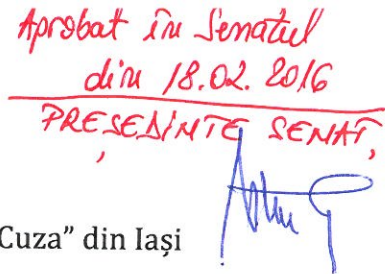 Aprobat în Senatul
din 18.02. 2016
PREȘEDINTE SENAT,
Cuza” din Iași